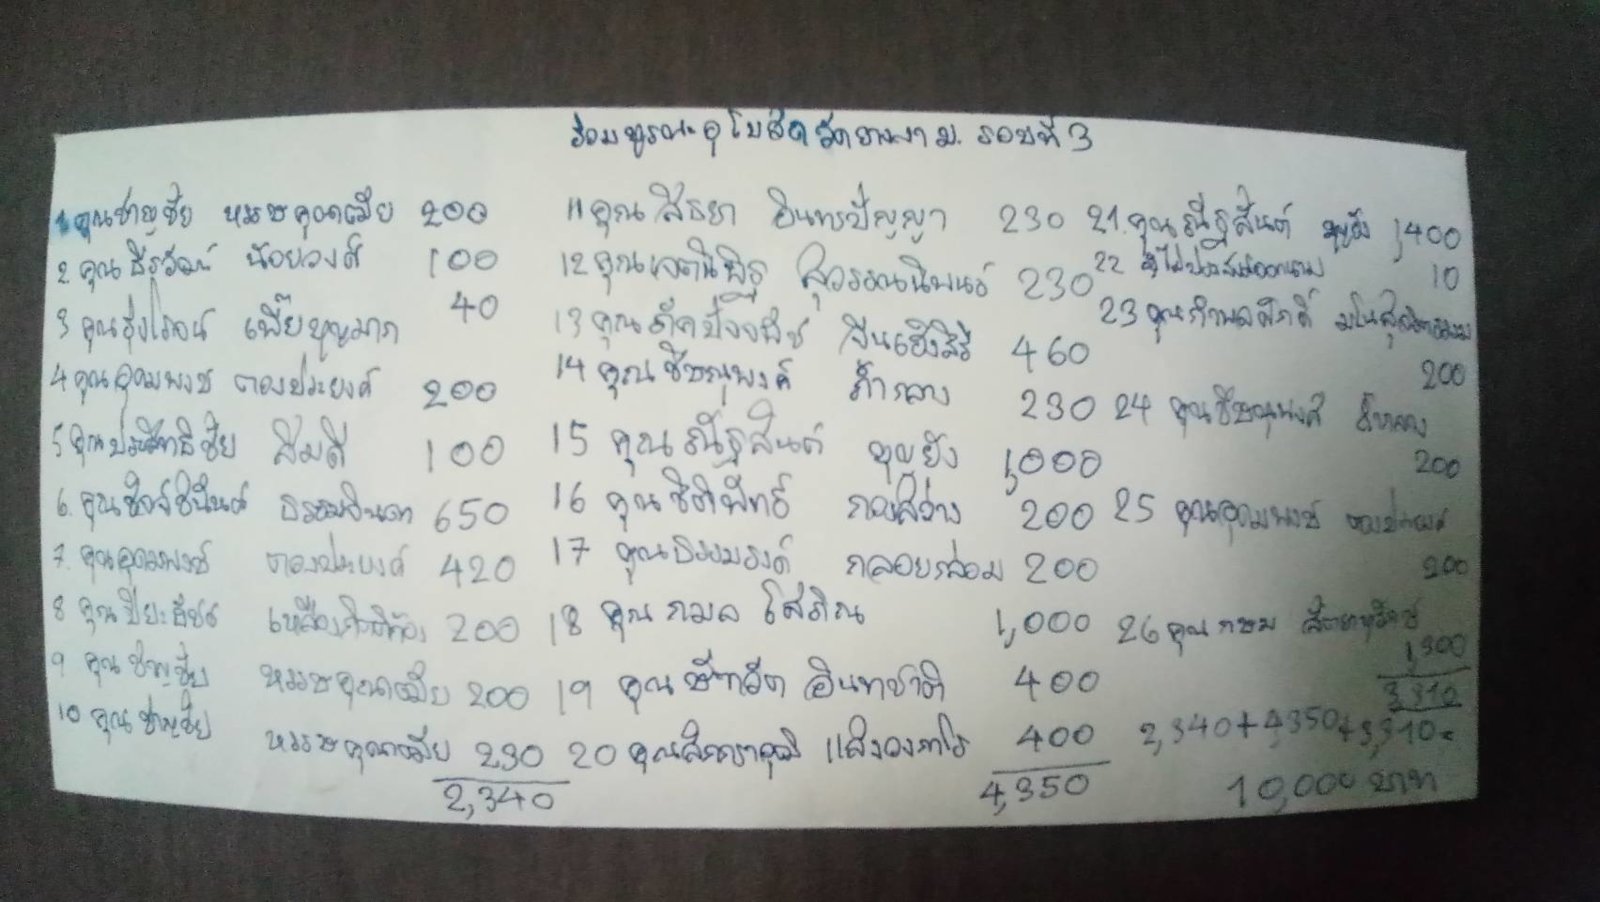 ร่วมบูรณะอุโบสถวัดยางงาม. รอบที่ 3
1 คุณชาญชัย 200
2 คุณธีรวัฒน์ น้อยวงศ์ 100
3 คุณรุ่งโรจน์ เพี๊ยบุญมาก 40
4 คุณอุดมพงษ์ ตองประยงค์ 200
5 คุณประสิทธิชัย สิมดี 100
6. คุณ ธรรมจินดา 650
7. คุณอุดมพงษ์ ตองประยงค์ 420
8 คุณปิยะธัชช์ 200
9 คุณชาญชัย 200
10 คุณชาญชัย 230
2,340
11 คุณสิธยา อินทรปัญญา 230
12 คุณเจตนิพิฐ สุวรรณนิพนธ์ 230
13 คุณ จีนเฮ็งสิริ 460
14 คุณชิษณุพงศ์ ก้ำกลาง 230
15 คุณณัฐสันต์ บุญยัง 1,000
16 คุณชิติพัทธ์ กองสว่าง 200
17 คุณธรรมรงค์ กลอยกล่อม 200
18 คุณกมล โสภิณ 1,000
19 คุณษัทวัต อินทชาติ 400
20 คุณ 400
4,350
21. คุณณัฐสันต์ บุญยัง 1,400
22 ผู้ไม่ประสงค์ออกนาม 10
23 คุณกำพลศักดิ์
200
24 คุณชิษณุพงศ์ ก้ำกลาง
200
25 คุณอุดมพงษ์ ตองประยงค์
200
26 คุณกษม
1,300
3,310
2,340+4,350+3,310=
10,000 บาท